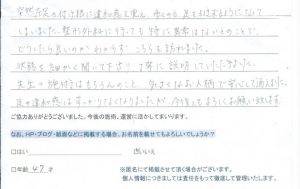 突然左足の付け根に違和感を覚え、歩くのも足を引きずるようになって
しまいました。整形外科に行っても特に異常はないとのことで、
どうしたら良いものかわからず、こちらを訪れました。
状態を細かく聞いて下さり、丁寧に説明していただきました。
先生の施術はもちろんのこと、気さくなお人柄で安心して通えました。
足の違和感はすっかりなくなりましたが、今後ともよろしくお願い致します。
ご協力ありがとうございました。今後の施術、運営に活かしてまいります。
なお、HP・ブログ・紙面などに掲載する場合、お名前を載せてもよろしいでしょうか?
□はい ☑いいえ
□年齢 47 才
※匿名にて掲載させて頂く場合がございます。
個人情報につきましては責任をもって徹底して管理いたします。